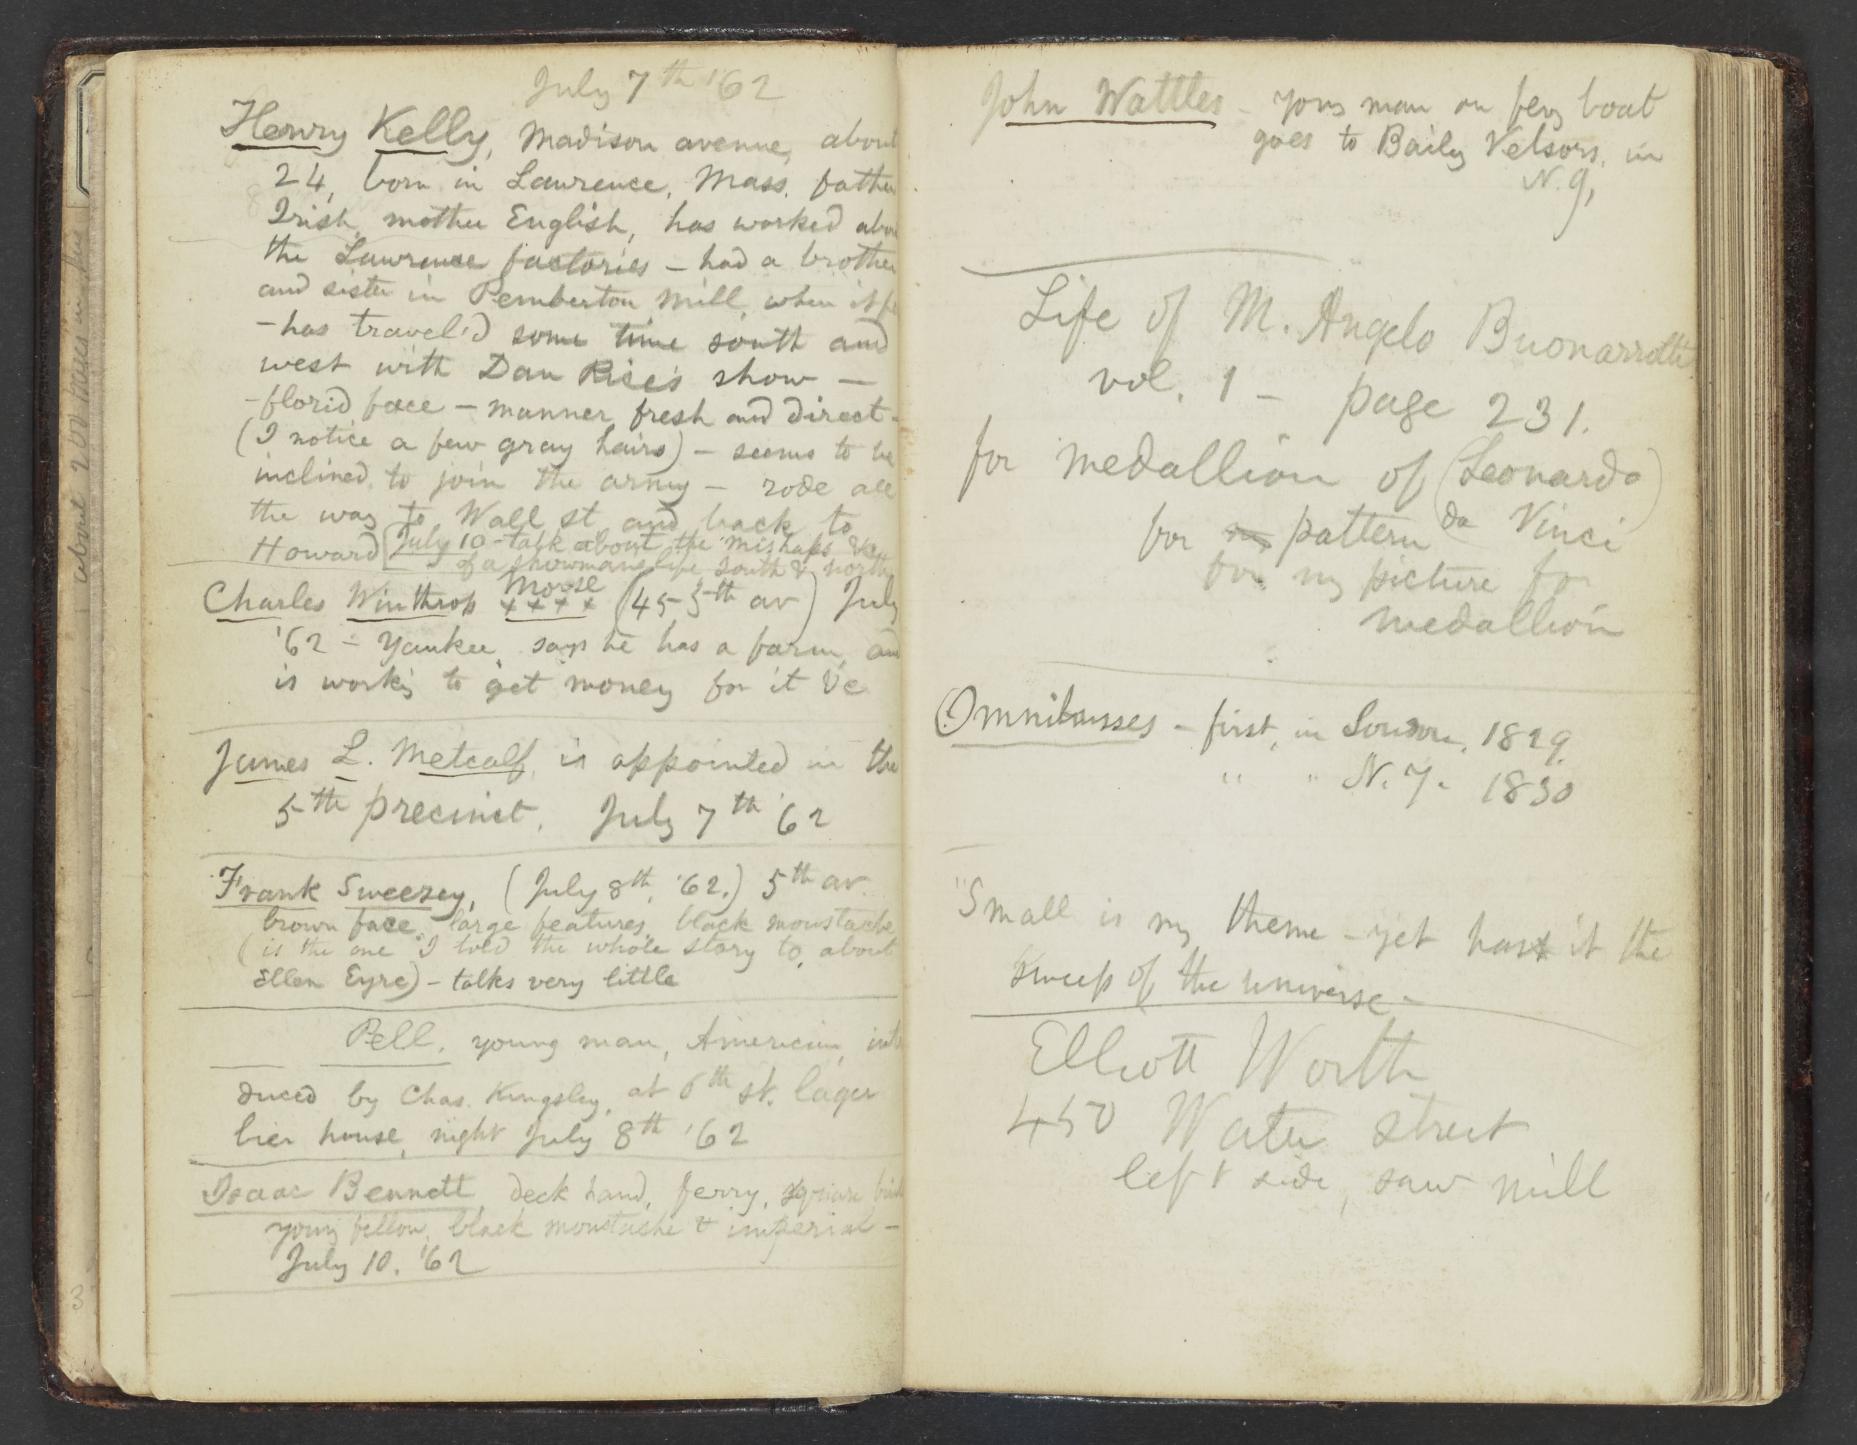 July 7th '62
Henry Kelly, Madison avenue, about
24, born in Lawrence, Mass. father
Irish, mother English, has worked abou
the Lawrence factories – had a brother
and sister in Pemberton Mill, when it fe
– has travel'd some time south and
west with Dan Rice's show –
– florid face – manner fresh and direct –
(I notice a few gray hairs) – seems to be
inclined to join the army – rode all
the way to Wall st and back to
Howard [July 10 – talk about the mishaps &c
of a showman's life south & north
Charles Winthrop Moose (45 5th av) July
x x x x
'62 – Yankee, says he has a farm, and
is workg to get money for it &c
James L. Metcalf, is appointed in the
5th precinct, July 7th '62
Frank Sweezey, (July 8th, '62.) 5th av.
brown face, large features, black moustache
(is the one I told the whole story to, about
Ellen Eyre) – talks very little
Pell, young man, American, intr
duced by Chas. Kingsley, at 6th st. lager
bier house, night July 8th '62
Isaac Bennett, deck hand, ferry, square
young fellow, black moustache & imperial –
July 10. '62
above 200 lines in this
3
John Wattles – yong man on fery boat
goes to Baily Velsors, in
N.Y,
Life of M. Angelo Buonarrotti
vol. 1 – page 231.
for medallion of (Leonardo)
da Vinci
for pattern
for my picture for
medallion
Omnibusses – first, in London, 1829.
" " N.Y. 1830
"Small is my theme – yet hast it the
sweep of the universe –
Elliott Worth
450 Water street
left side, saw mill